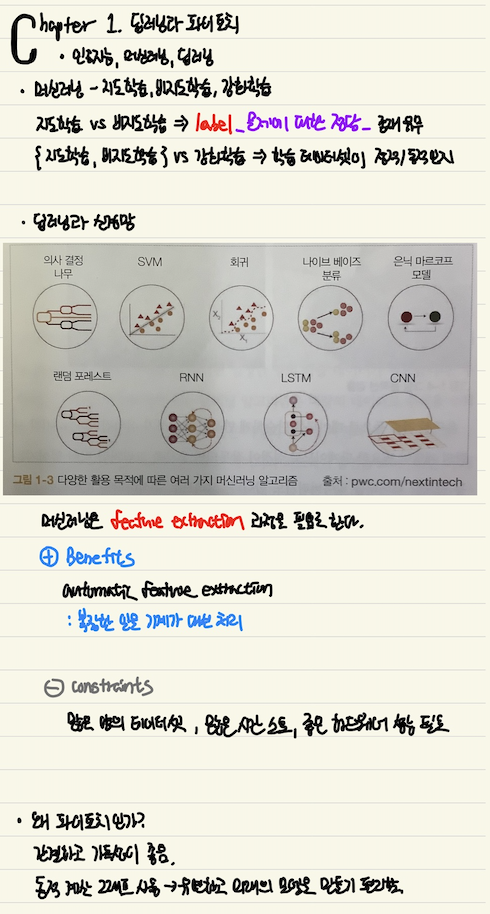 Chapter 1. 딥러닝과 파이토치
• 인공지능, 머신러닝, 딥러닝
• 머신러닝 - 지도학습, 비지도학습, 강화학습
지도학습 vs 비지도학습 ⇒ label_문제에 대한 정답_ 존재 유무
{ 지도학습, 비지도학습 } vs 강화학습 ⇒ 학습 데이터셋이 정적/동적인지
• 딥러닝과 신경망
의사 결정 나무 SVM 회귀 나이브 베이즈 분류 은닉 마르코프 모델
X₂
X₁
랜덤 포레스트 RNN LSTM CNN
그림 1-3 다양한 활용 목적에 따른 여러 가지 머신러닝 알고리즘 출처 : pwc.com/nextintech
머신러닝은 feature extraction 과정을 필요로 한다.
⊕ Benefits
automatic feature extraction
: 복잡한 일을 기계가 대신 처리
⊖ constraints
많은 양의 데이터셋, 많은 시간 소모, 좋은 하드웨어 성능 필요
• 왜 파이토치인가?
간결하고 가독성이 좋음.
동적 계산 그래프 사용 → 유연하고 의 모델을 만들기 편리함.